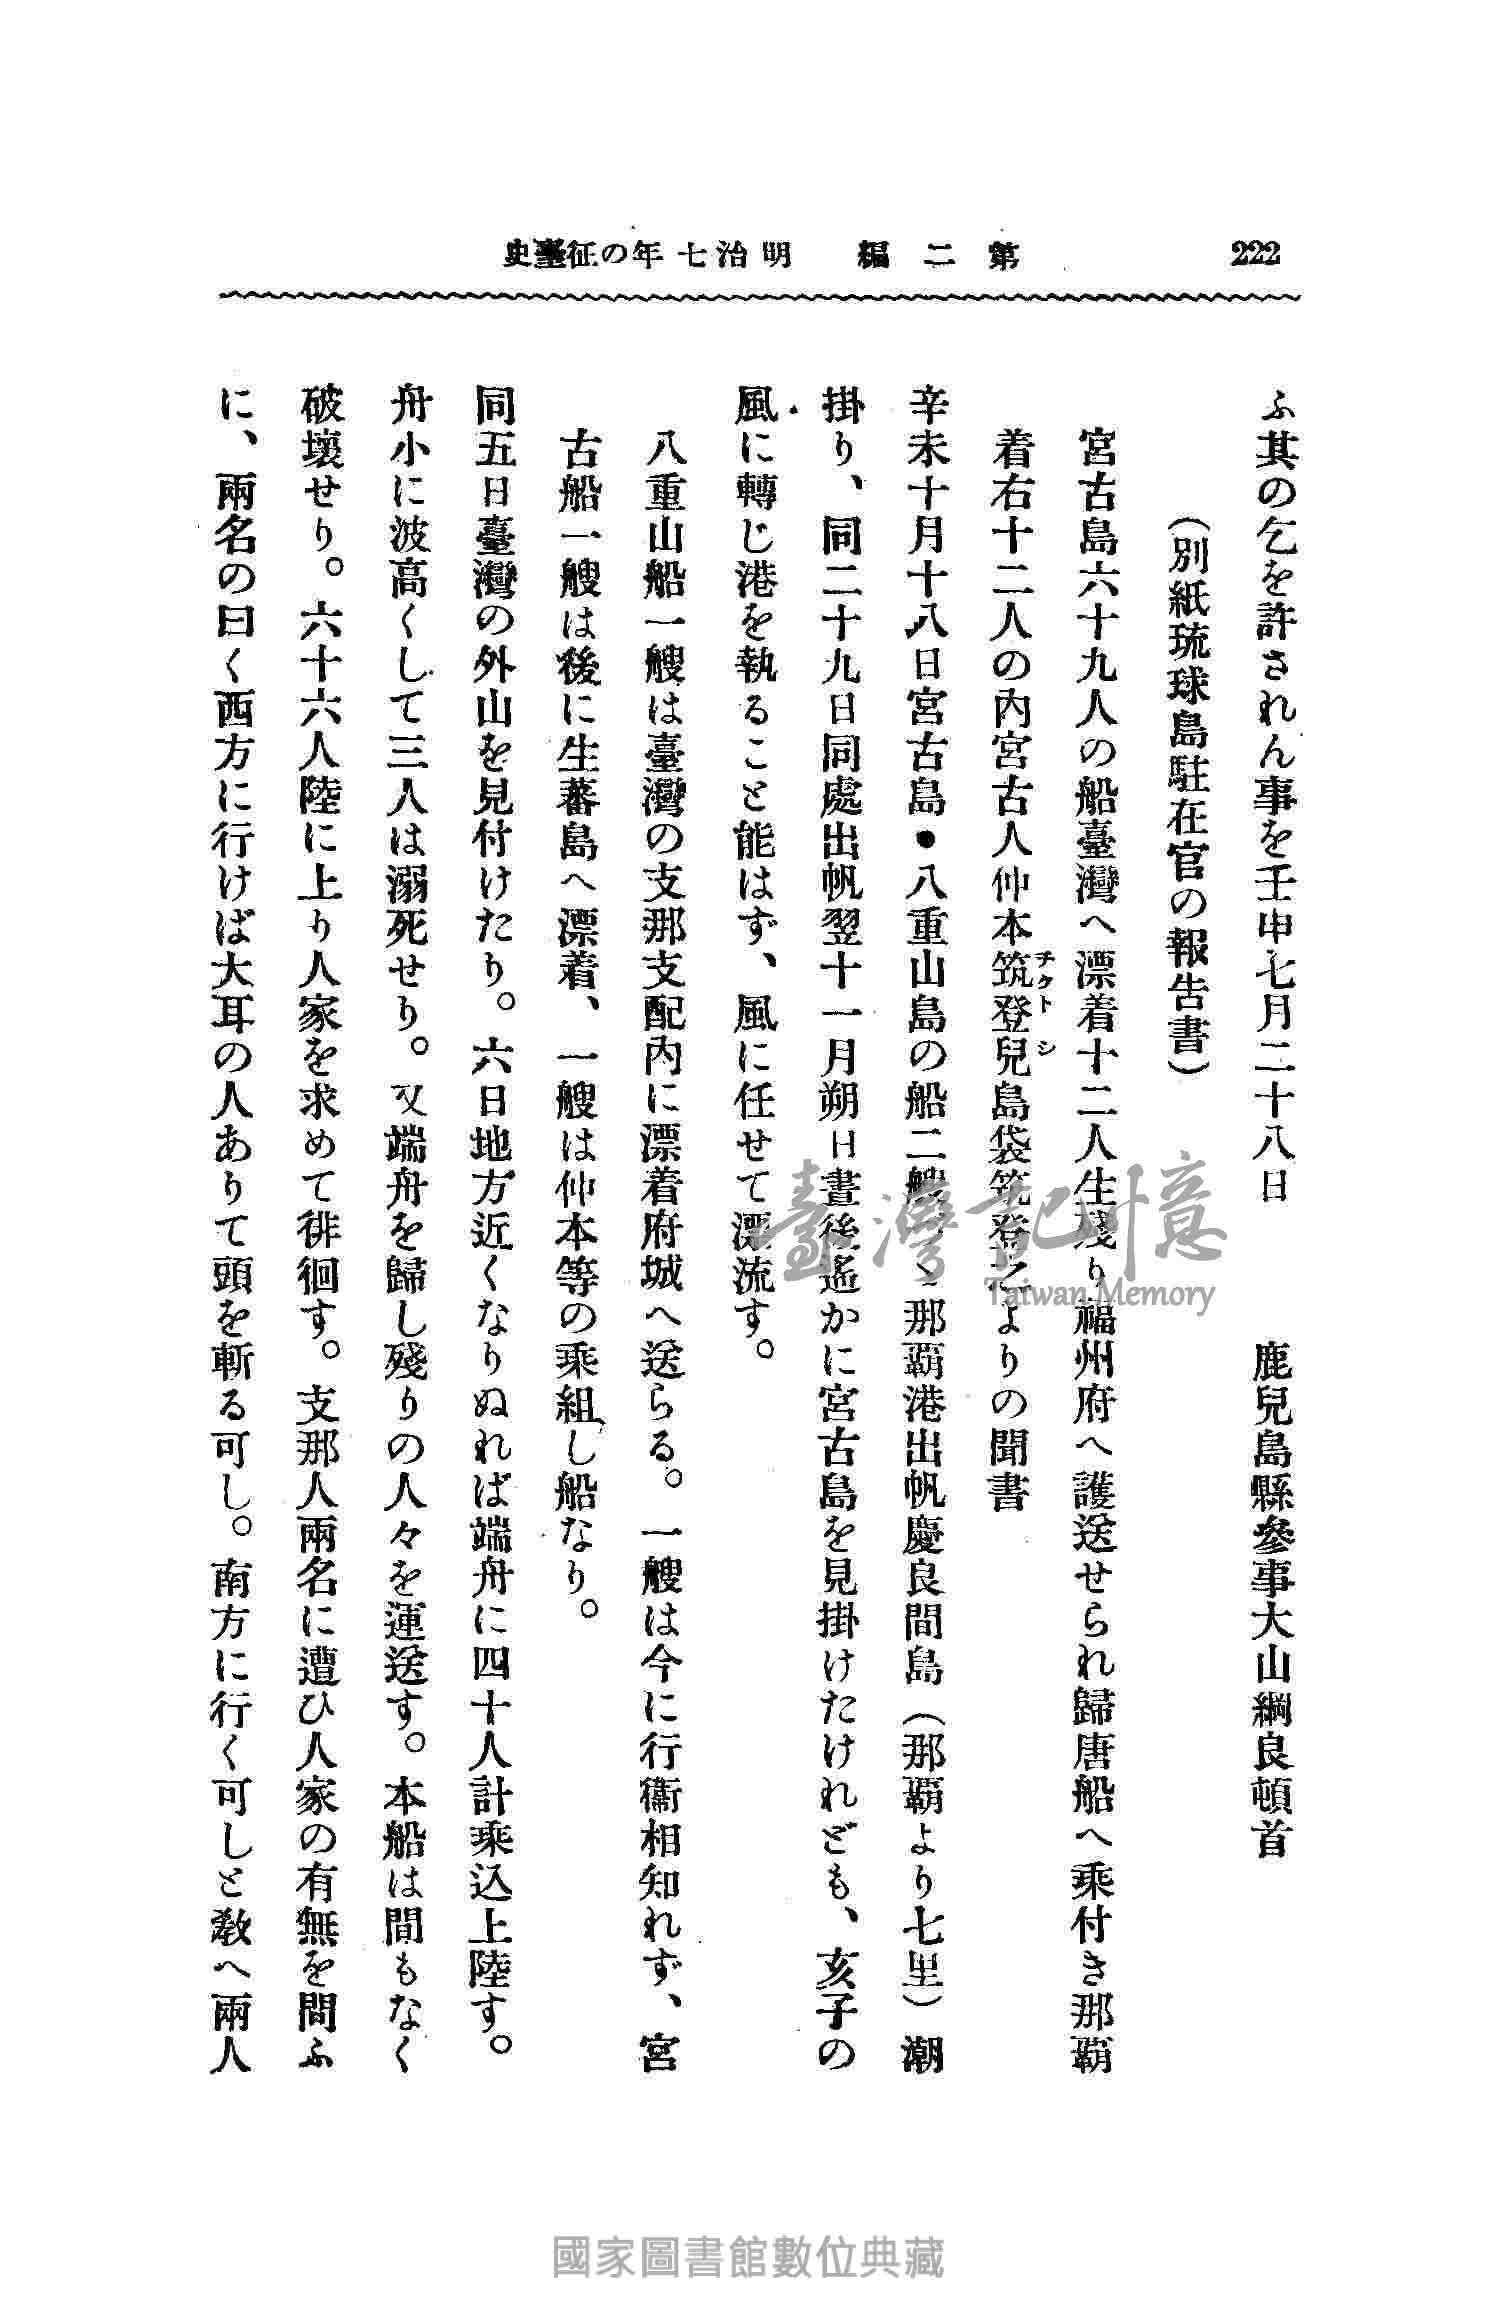 222
第二編　明治七年の征臺史
ふ其の乞を許されん事を壬申七月二十八日　　　鹿兒島縣參事大山綱良頓首
（別紙琉球島駐在官の報告書）
宮古島六十九人の船臺灣へ漂着十二人生殘り福州府へ護送せられ歸唐船へ乘付き那覇
着右十二人の內宮古人仲本筑登兒島袋筑登之よりの聞書
チクトシ
辛未十月十八日宮古島・八重山島の船二艘づゝ那覇港出帆慶良間島（那覇より七里）潮
掛り、同二十九日同處出帆翌十一月朔日晝後遙かに宮古島を見掛けたけれども、亥子の
風に轉じ港を執ること能はず、風に任せて漂流す。
八重山船一艘は臺灣の支那支配內に漂着府城へ送らる。一艘は今に行衞相知れず、宮
古船一艘は後に生蕃島へ漂着、一艘は仲本等の乘組し船なり。
同五日臺灣の外山を見付けたり。六日地方近くなりぬれば端舟に四十人計乘込上陸す。
舟小に波高くして三人は溺死せり。又端舟を歸し殘りの人々を運送す。本船は間もなく
破壞せり。六十六人陸に上り人家を求めて徘徊す。支那人兩名に遭ひ人家の有無を問ふ
に、兩名の曰く西方に行けば大耳の人ありて頭を斬る可し。南方に行く可しと敎へ兩人
臺灣記憶
Taiwan Memory
國家圖書館數位典藏